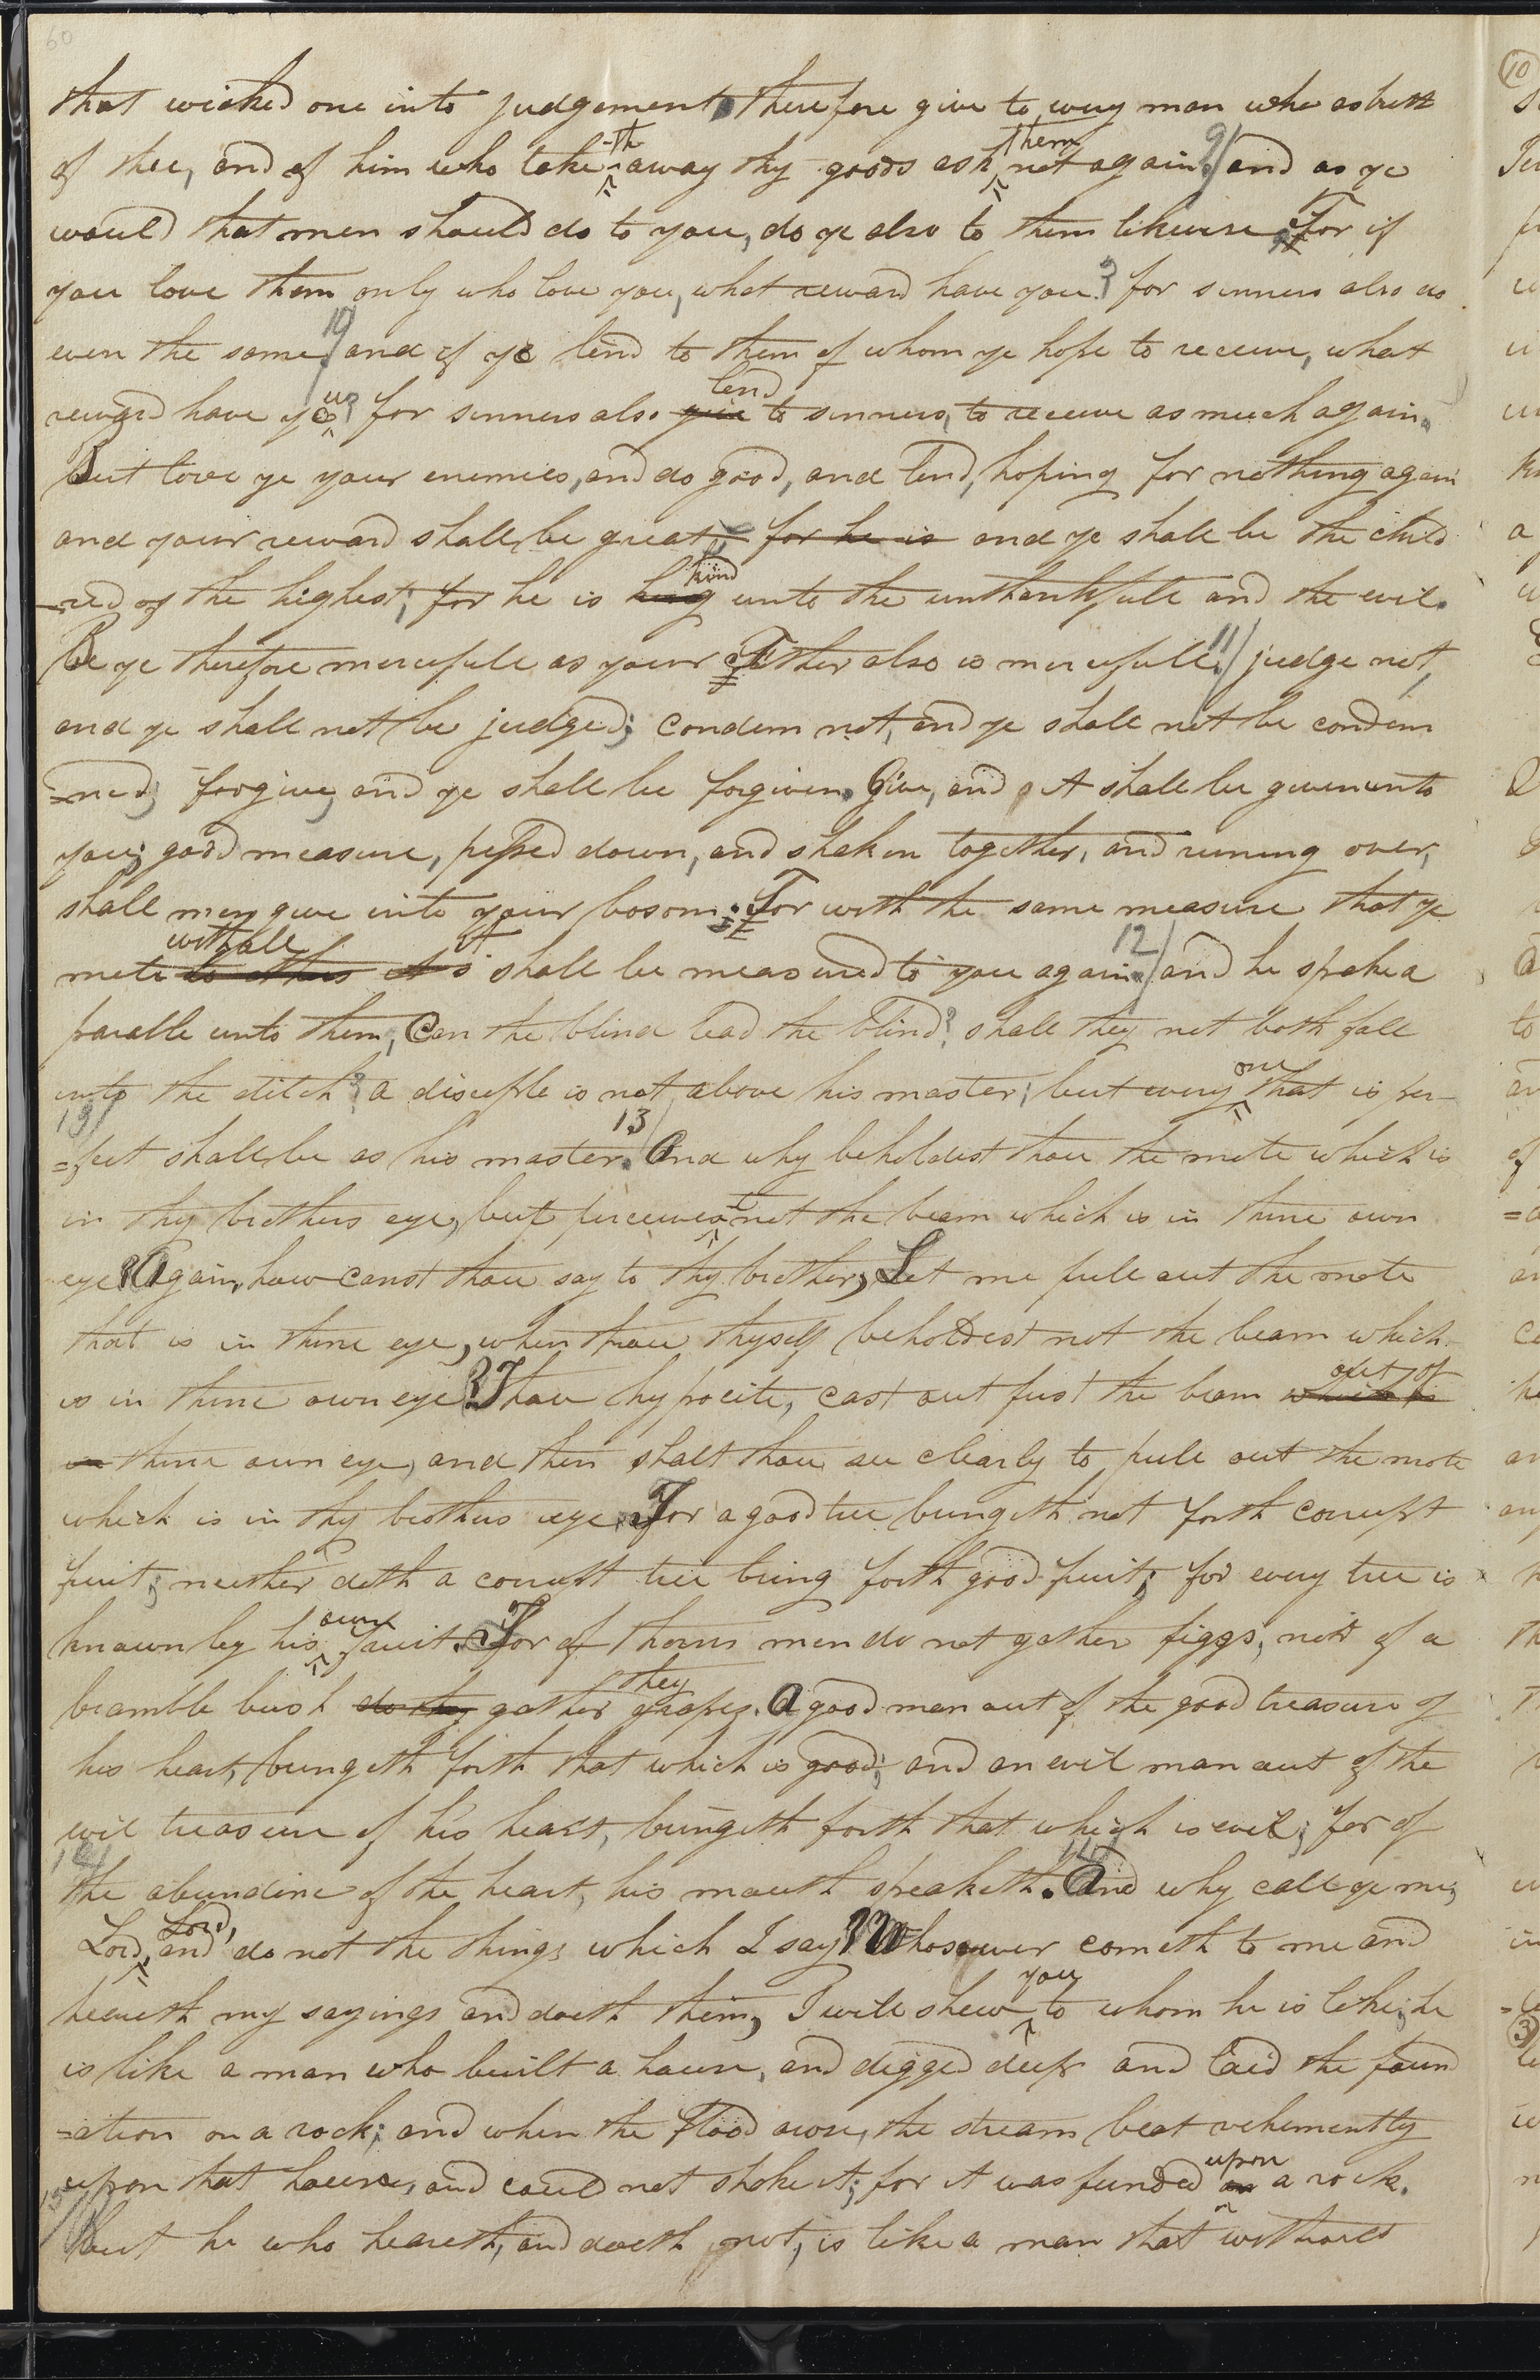 60
that wicked one into judgement therefore give to evry man who asketh
of thee, and of him who take-th away thy goods ask them not again. 9/ and as ye
would that men should do to you, do ye also to them likewise. For if
you love them only who love you, what reward have you? for sinners also do
even the same. 10/ and if ye lend to them of whom ye hope to receive, what
reward have you? for sinners also give lend to sinners, to receive as much again.
But love ye your enemies, and do good, and lend, hoping for nothing again
and your reward shall be great, for he is and ye shall be the child
-red of the highest; for he is king kind unto the unthankfull and the evil.
Be ye therefore mercifull as your Father also is mercifull. 11/ judge not,
and ye shall not be judged; condem not, and ye shall not be condem
=ned; forgive, and ye shall be forgiven. Give, and it shall be given unto
you; good measure, pessed down, and shaken together, and runing over,
shall men give into your bosom. For with the same measure that ye
mete to others withall it s it shall be measured to you again. 12/ and he spake a
parable unto them, Can the blind lead the blind? shall they not both fall
into the ditch? a disciple is not above his master; but every one that is per-
13/ =fect shall be as his master. 13/ And why beholdest thou the mote which is
in thy brothers eye, but perceivest not the beam which is in thine own
eye? Again, how canst thou say to thy brother, Let me pull out the mote
that is in thine eye, when thou thyself beholdest not the beam which
is in thine own eye? Thou hypocite, cast out first the beam which is out of
in thine own eye, and then shalt thou see clearly to pull out the mote
which is in thy brothers eye. For a good tree bringeth not forth corrupt
fruit; neither doth a corrupt tree bring forth good fruit; for every tree is
known by his own fruit. For of thorns men do not gather figgs, nor of a
bramble bush do they gather they grapes. A good man out of the good treasure of
his heart, bringeth forth that which is good; and an evil man out of the
evil treasure of his heart, bringeth forth that which is evil; for of
14/ the abundinc of the heart, his mouth speaketh. 14/ And why call ye me,
Lord, Lord, and do not the things which I say? Whosoever cometh to me and
heareth my sayings and doeth them, I will shew you to whom he is like; he
is like a man who built a house, and digged deep and laid the found
=ation on a rock; and when the flood arose, the stream beat vehemently
upon that house, and could not shake it; for it was funded on upon a rock.
15/ But he who heareth, and doeth not, is like a man that without